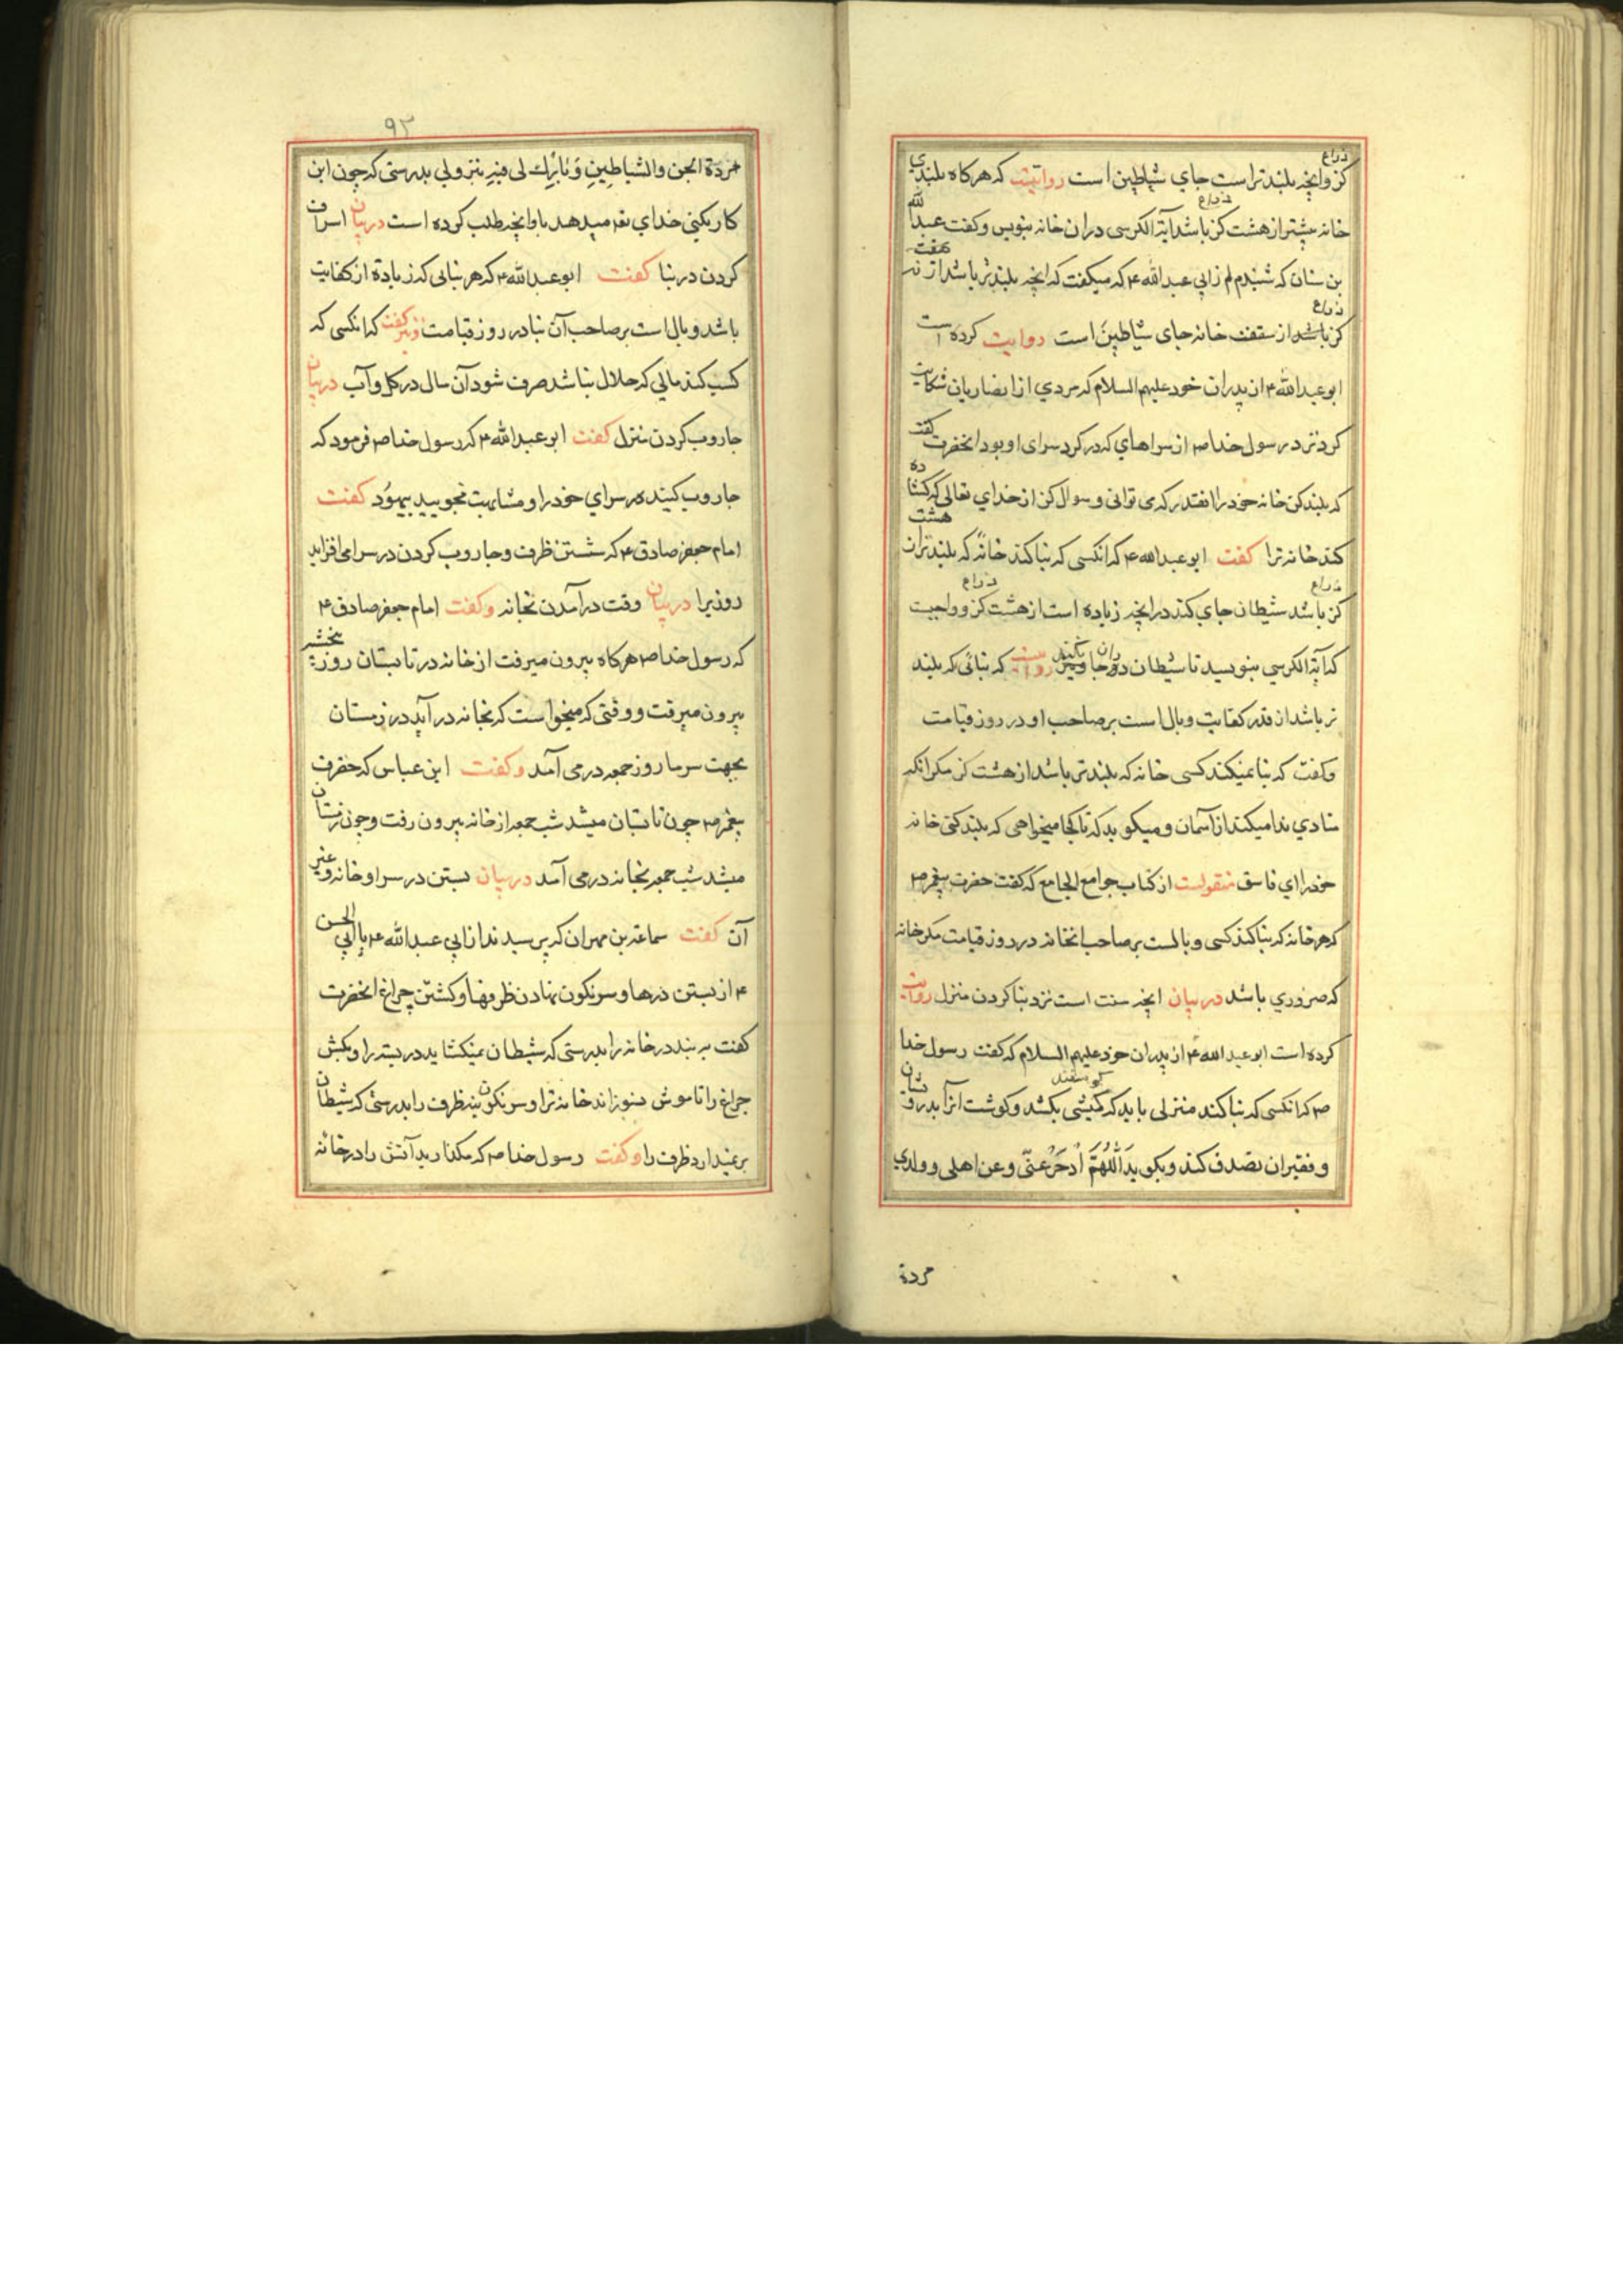 کز وانچه بلندتر است جای شیاطین است روایتیت که هرکاه بلندی
ذراع
خانه بیشتر از هشت کز باشد آیة الکرسی در ان خانه بنویس وکفت عبدالله
ذراع
بن سنان که شنیدم از ابی عبدالله ع که میکفت که انچه بلندتر باشد از
هفت
کز باشد از سقف خانه جای شیاطین است روایت کرده است
ذراع
ابوعبدالله ع از پدران خود علیهم السلام که مردی از انصاریان شکایت
کرد نزد رسول خدا ص از سراهای که در کرد سرای او بود انحضرت کفت
که بلند کن خانه خود را انقدر که می توانی وسوال کن از خدای تعالی که کشاده
کند خانه ترا کفت ابوعبدالله ع که انکسی که بنا کند خانه که بلندتر از
هشت
کز باشد شیطان جای کند در انچه زیاده است از هشت کز و واجبت
ذراع ذراع
که آیة الکرسی بنویسید تا شیطان دران جا نکند روایت که بنائی که بلند
تر باشد از قدر کفایت وبال است بر صاحب او در روز قیامت
وکفت که بنا نمیکند کسی خانه که بلندتر باشد از هشت کز مکر انکه
منادی ندا میکند از آسمان ومیکوید که تا کجا میخواهی که بلند کنی خانه
خود را ای فاسق منقولست از کتاب جوامع الجامع که کفت حضرت پیغمبر ص
که هر خانه که بنا کند کسی وبالست بر صاحب انخانه در روز قیامت مکر خانه
که ضروری باشد در بیان انچه سنت است نزد بنا کردن منزل روایت
کرده است ابوعبدالله ع از پدران خود علیهم السلام که کفت رسول خدا
ص که انکسی که بنا کند منزلی باید که کبشی بکشد وکوشت آنرا بدرویشان
کوسفند
وفقیران تصدق کند وبکوید اَللّٰهُمَّ ادحَرْ عنّی وعن اهلی وولدی
مردة
۹۳
مردة الجن والشیاطینِ وَبارِک لی فیه بنزولی بدرستی که چون این
کار بکنی خدای تعم میدهد باو انچه طلب کرده است در بیان اسراف
کردن در بنا کفت ابوعبدالله ع که هر بنائی که زیادة از کفایت
باشد وبال است بر صاحب آن بنا در روز قیامت ونیز کفت که انکسی که
کسب کند مالی که حلال نباشد صرف شود آن مال در کل وآب در بیان
جاروب کردن منزل کفت ابوعبدالله ع که رسول خدا ص فرمود که
جاروب کنید در سرای خود را ومشابهت مجویید بیهود کفت
امام جعفر صادق ع که شستن ظرف وجاروب کردن در سرا می افزاید
روزیرا در بیان وقت درآمدن بخانه وکفت امام جعفر صادق ع
که رسول خدا ص هرکاه بیرون میرفت از خانه در تابستان روز پنجشنبه
بیرون میرفت ووقتی که میخواست که بخانه درآید در زمستان
بجهت سرما روز جمعه در می آمد وکفت ابن عباس که حضرت
پیغمبر ص چون تابستان میشد شب جمعه از خانه بیرون رفت وچون زمستان
میشد شب جمعه بخانه در می آمد در بیان بستن در سرا وخانه وغیر
آن کفت سماعة بن مهران که پرسیدند از ابی عبدالله ع یا ابی الحسن
ع از بستن درها وسرنکون نهادن ظرفها وکشتن چراغ انحضرت
کفت به بند در خانه را بدرستی که شیطان نمیکشاید در بسته را وبکش
چراغ را تا موش نسوزاند خانه ترا وسرنکون بنه ظرف را بدرستی که شیطان
بر نمیدارد ظرف را وکفت رسول خدا ص که مکذارید آتش را در خانه